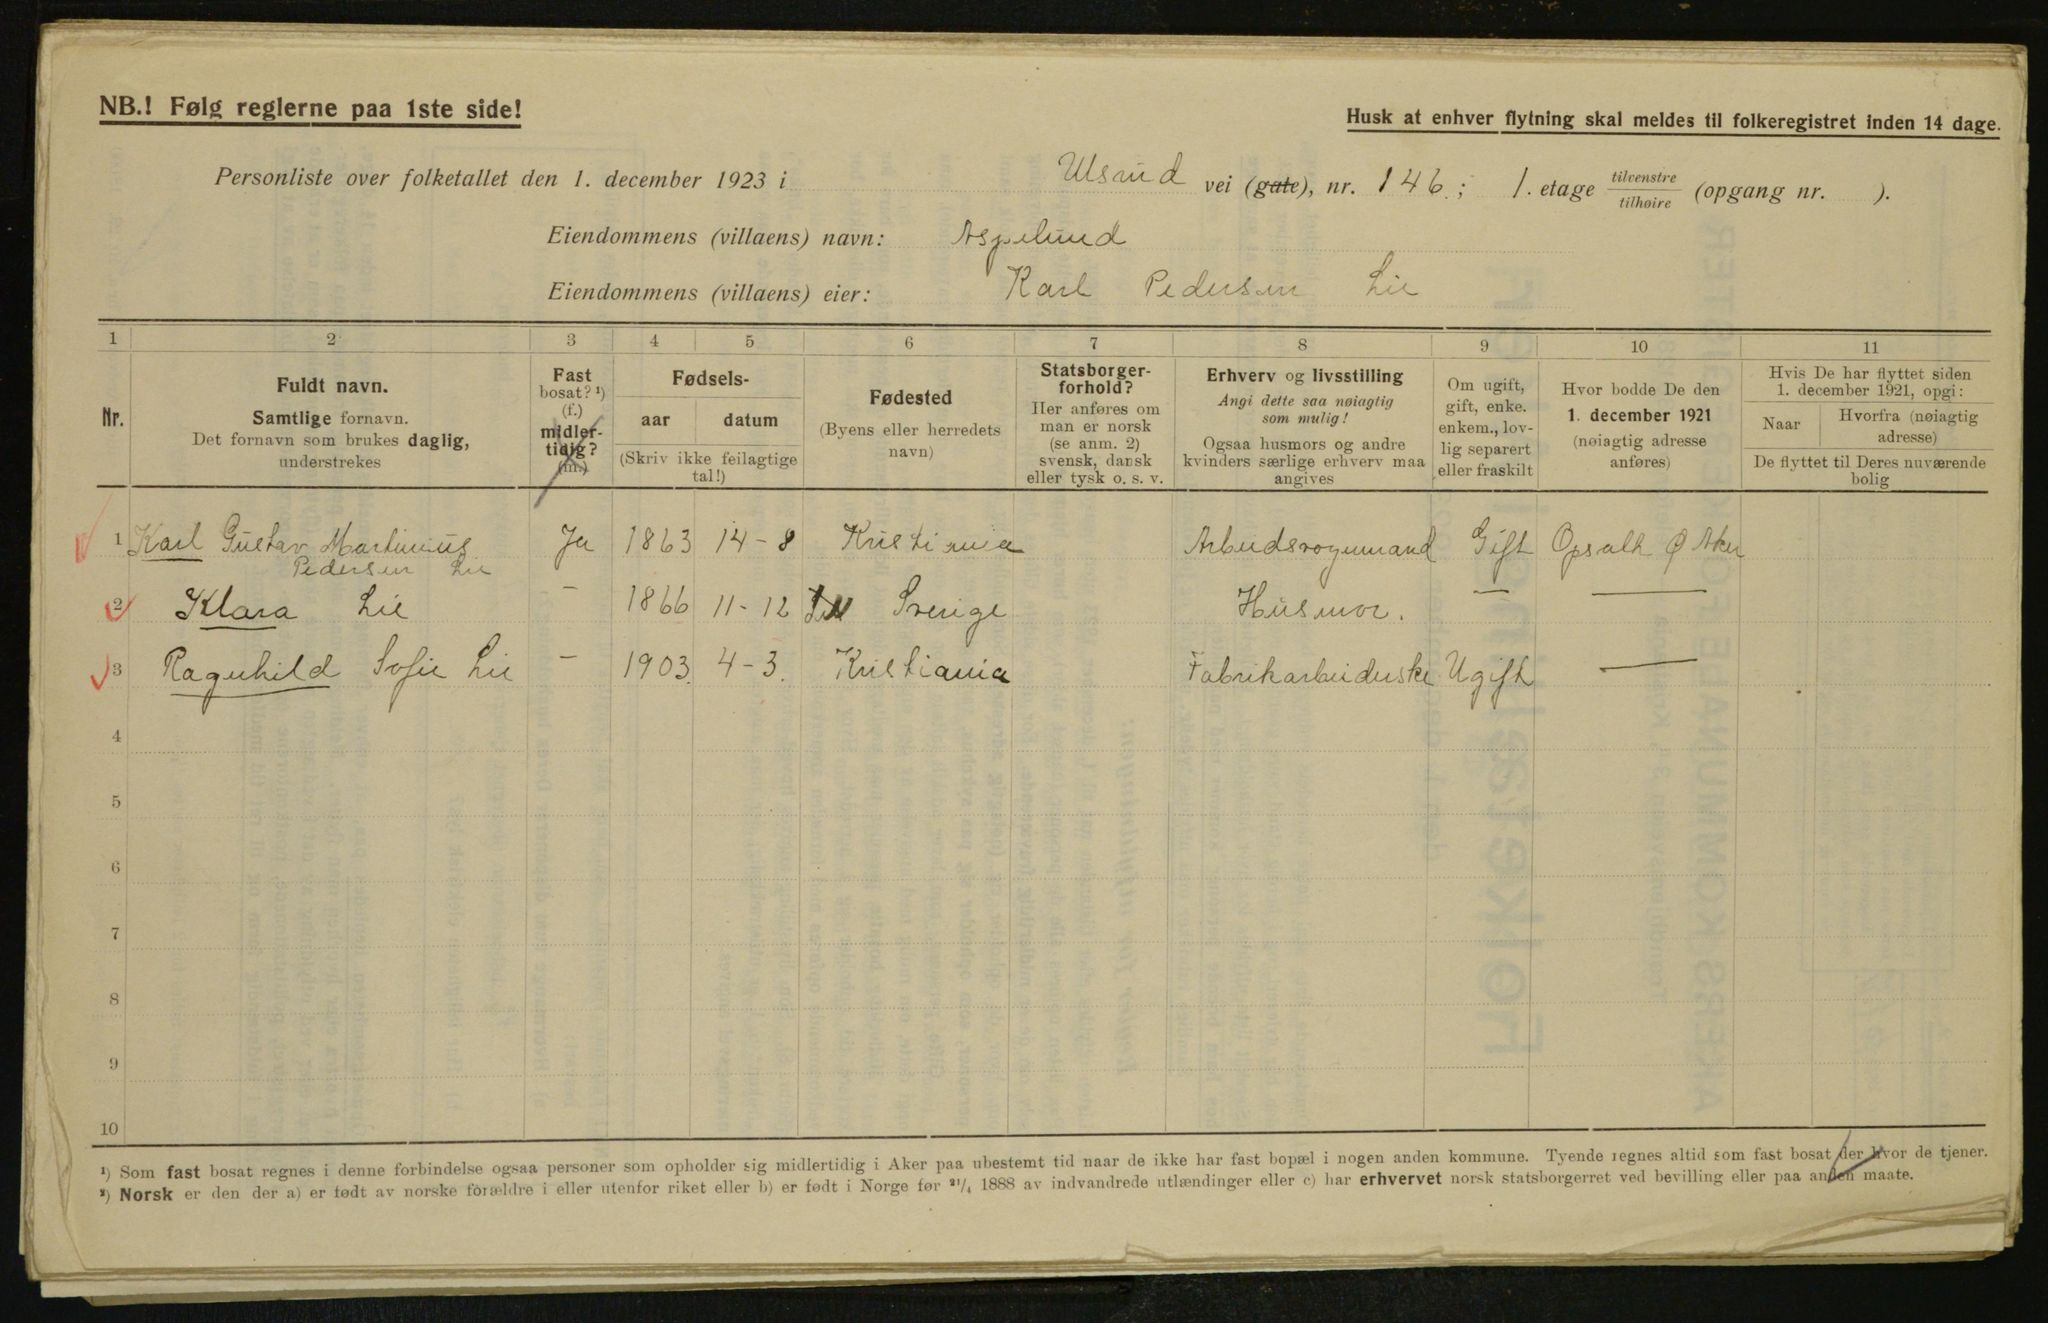 NB.! Følg reglerne paa 1ste side!
Husk at enhver flytning skal meldes til folkeregistret inden 14 dage.
Personliste over folketallet den 1. december 1923 i Ulsrud vei (gate), nr. 146; 1. etage tilvenstre/tilhøire (opgang nr. ).
Eiendommens (villaens) navn: Aspelund
Eiendommens (villaens) eier: Karl Pedersen Lie
1 2 3 4 5 6 7 8 9 10 11
Nr.
Fuldt navn.
Samtlige fornavn.
Det fornavn som brukes daglig,
understrekes
Fast
bosat? ¹)
(f.)
midler-
tidig?
(m.)
Fødsels-
aar datum
(Skriv ikke feilagtige
tal!)
Fødested
(Byens eller herredets
navn)
Statsborger-
forhold?
Her anføres om
man er norsk
(se anm. 2)
svensk, dansk
eller tysk o. s. v.
Erhverv og livsstilling
Angi dette saa nøiagtig
som mulig!
Ogsaa husmors og andre
kvinders særlige erhverv maa
angives
Om ugift,
gift, enke.
enkem., lov-
lig separert
eller fraskilt
Hvor bodde De den
1. december 1921
(nøiagtig adresse
anføres)
Hvis De har flyttet siden
1. december 1921, opgi:
Naar Hvorfra (nøiagtig
adresse)
De flyttet til Deres nuværende
bolig
1 Karl Gustav Martinius Ja 1863 14-8 Kristiania Arbeidsvognmand Gift Opsalh Ø Aker
Pedersen Lie
2 Klara Lie - 1866 11-12 Sverige Husmor. — —
3 Ragnhild Sofie Lie - 1903. 4-3. Kristiania Fabrikarbeiderske Ugift —
4
5
6
7
8
9
10
¹) Som fast bosat regnes i denne forbindelse ogsaa personer som opholder sig midlertidig i Aker paa ubestemt tid naar de ikke har fast bopæl i nogen anden kommune. Tyende regnes altid som fast bosat der hvor de tjener.
²) Norsk er den der a) er født av norske forældre i eller utenfor riket eller b) er født i Norge før ²¹/₄ 1888 av indvandrede utlændinger eller c) har erhvervet norsk statsborgerret ved bevilling eller paa anden maate.